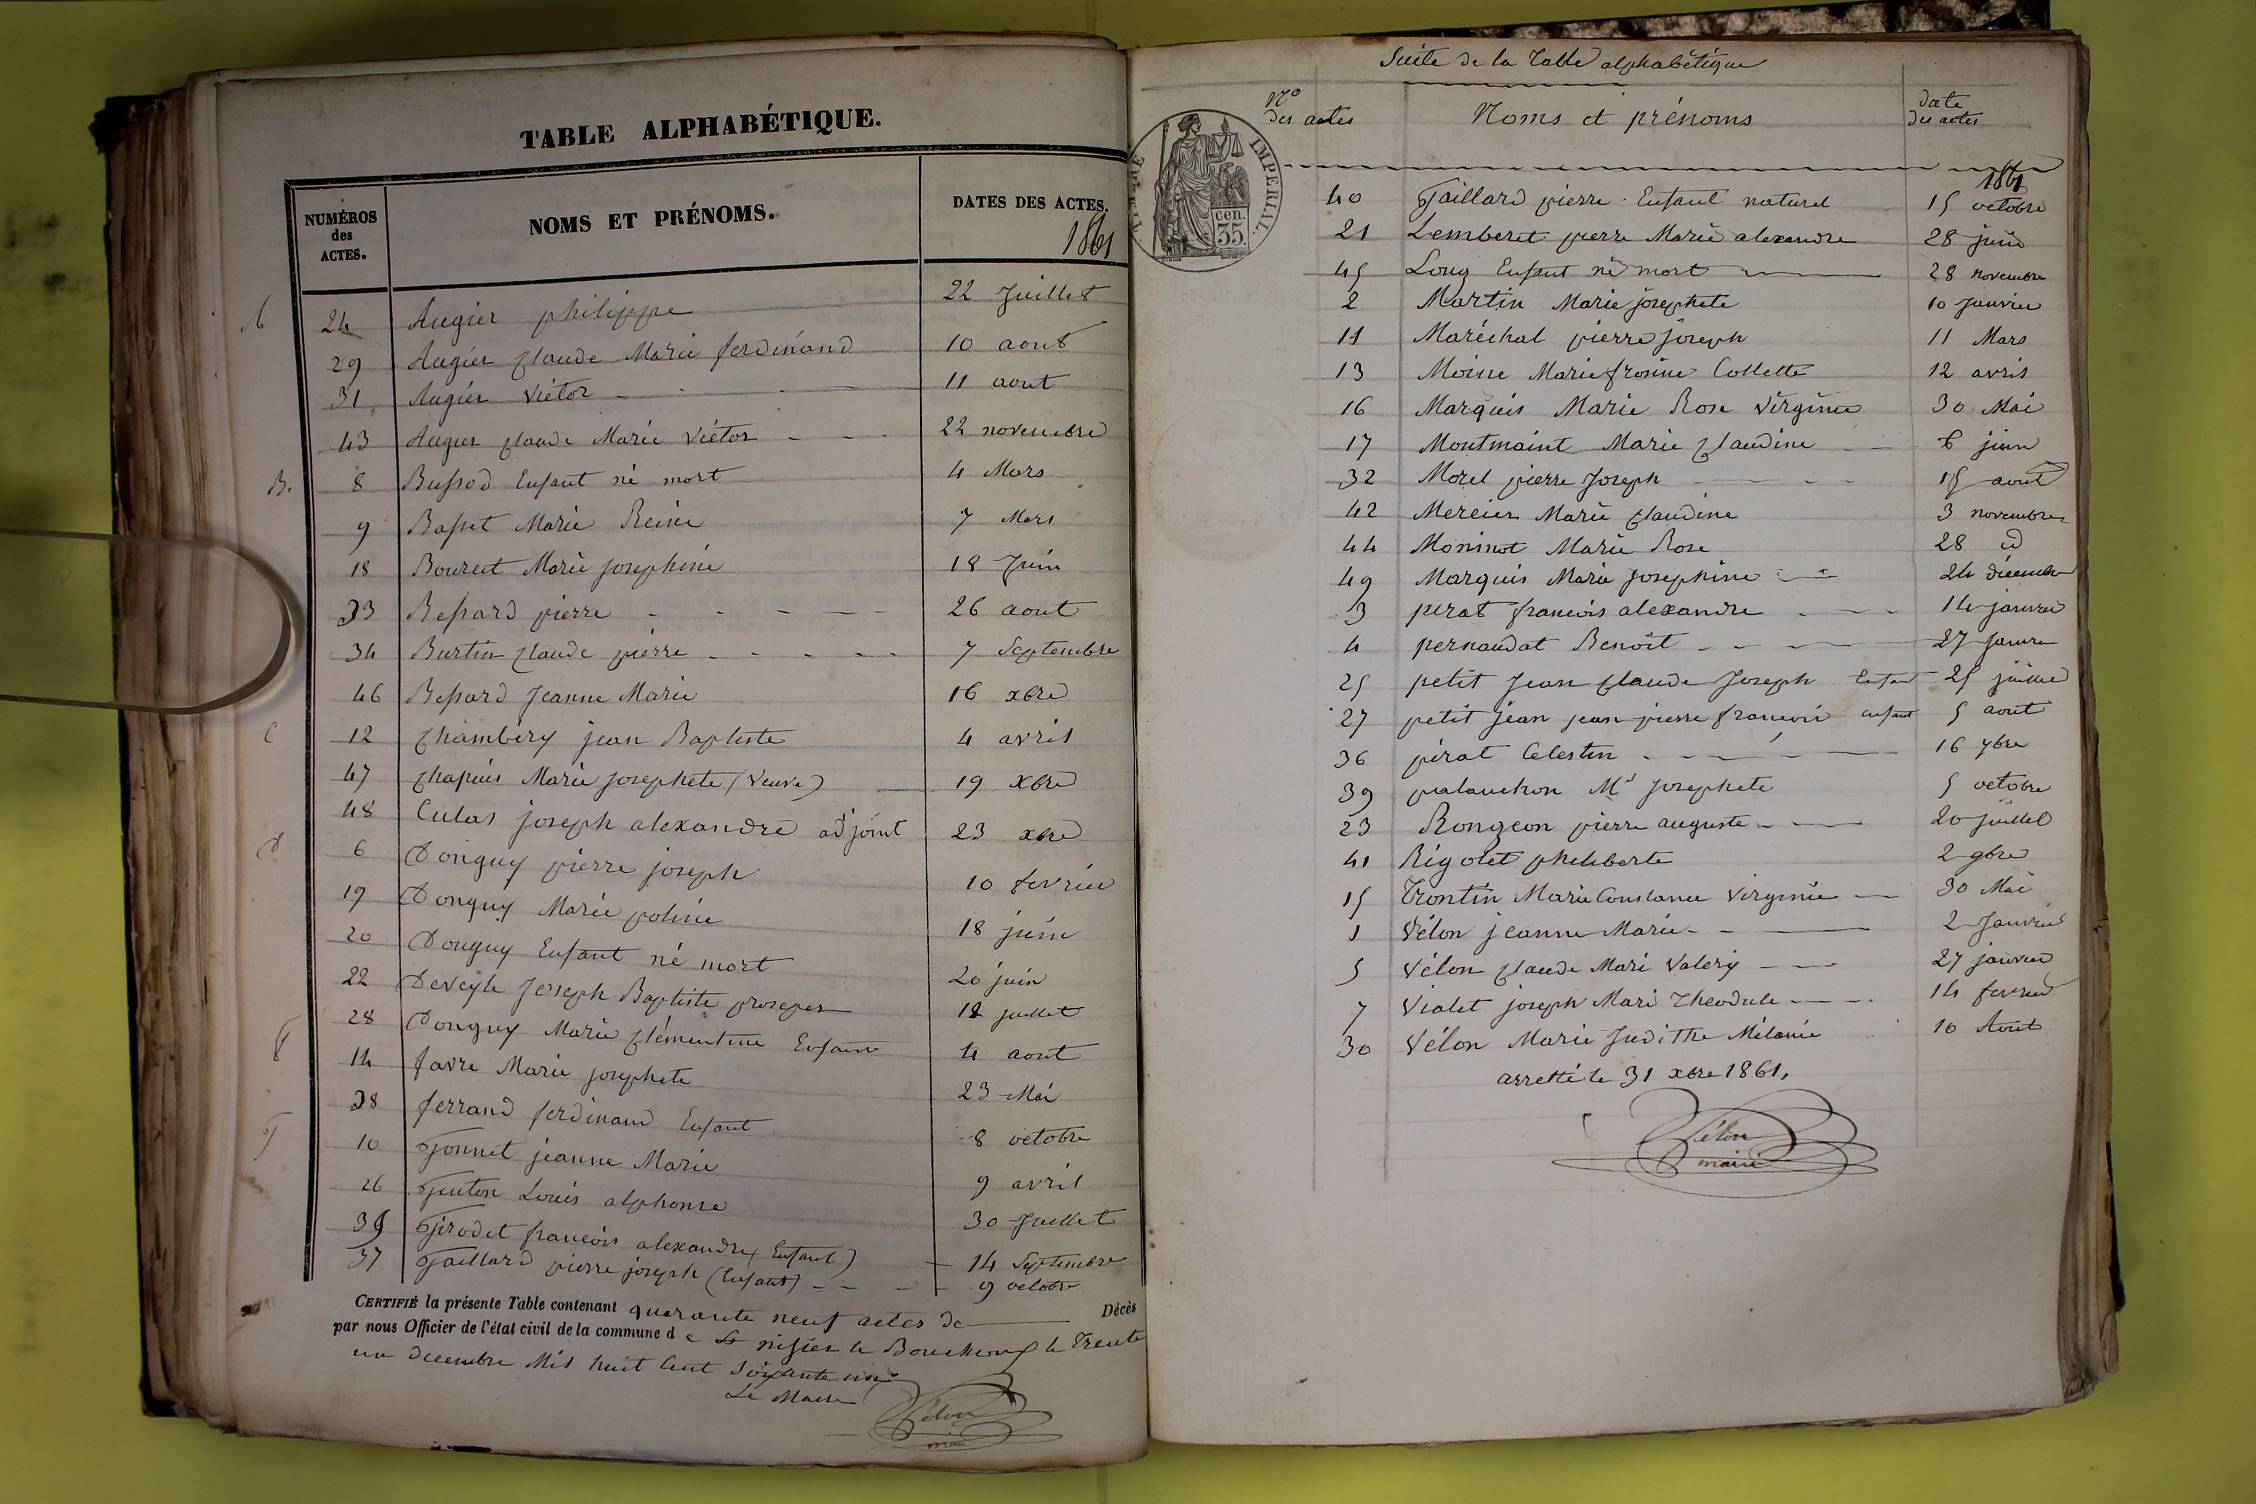 TABLE ALPHABÉTIQUE.
NUMÉROS des ACTES. NOMS ET PRÉNOMS. DATES DES ACTES.
1861
A 24 Augier philippe 22 Juillet
29 Augier Claude Marie ferdinand 10 aout
31 Augier Victor 11 aout
43 Augier Claude Marie Victor 22 novembre
B. 8 Bussod Enfant né mort 4 Mars
9 Basset Marie Reine 7 Mars
18 Bourcet Marie josephine 18 Juin
33 Bessard pierre 26 aout
34 Burtin Claude pierre 7 Septembre
46 Bessard Jeanne Marie 16 xbre
C 12 Chambéry jean Baptiste 4 avril
47 Chapuis Marie josephete (Veuve) 19 xbre
48 Culas joseph alexandre adjoint 23 xbre
D 6 Donguy pierre joseph 10 fevrier
19 Donguy Marie poline 18 juin
20 Donguy Enfant né mort 20 juin
22 Deveyle Joseph Baptiste prosper 12 juillet
28 Donguy Marie Clémentine Enfant 4 aout
F 14 favre Marie josephete 23 Mai
38 ferrand ferdinand Enfant 8 octobre
G 10 Gonnet jeanne Marie 9 avril
26 Guiton Louis alphonse 30 Juillet
35 Girodet francois alexandre (Enfant) 14 Septembre
37 Gaillard pierre joseph (Enfant) 9 octobre
CERTIFIÉ la présente Table contenant quarante neuf actes de Décès
par nous Officier de l'état civil de la commune de St nizier le Bouchoux le Trente
un decembre Mil huit Cent soixante un
Le Maire
Vélon
maire
Suite de la Table alphabétique
No des actes Noms et prénoms date des actes
TIMBRE IMPÉRIAL.
35 cen.
1861
40 Gaillard pierre Enfant naturel 15 octobre
21 Lemberet pierre Marie alexandre 28 juin
45 Long Enfant né mort 28 novembre
2 Martin Marie josephete 10 Janvier
11 Maréchal pierre joseph 11 Mars
13 Moine Marie frosine Collette 12 avril
16 Marquis Marie Rose Virginie 30 Mai
17 Montmaint Marie Claudine 6 juin
32 Morel pierre Joseph 15 aout
42 Mercier Marie Claudine 3 novembre
44 Moninot Marie Rose 28 id
49 Marquis Marie Josephine 24 décembre
3 perat francois alexandre 14 janvier
4 pernaudat Benoit 27 Janvier
25 petit Jean Claude Joseph Enfant 25 juillet
27 petit jean jean pierre francois enfant 5 aout
36 pirat Celestin 16 7bre
39 palanchon Me Josephete 5 octobre
23 Rongeon pierre auguste 20 juillet
41 Rigolet philiberte 2 9bre
15 Trontin Marie Constance Virginie 30 Mai
1 Vélon jeanne Marie 2 Janvier
5 Vélon Claude Mari Valery 27 janvier
7 Violet joseph Mari Theodule 14 fevrier
30 Vélon Marie Judithe Mélanie 10 Aout
arretté le 31 xbre 1861,
Vélon
maire